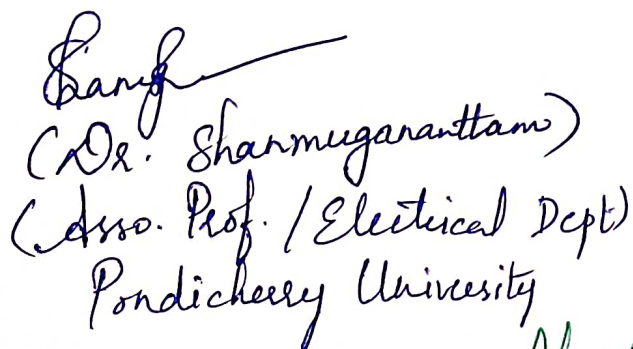 (Dr. Shanmugananttam)
(Asso. Prof. / Electrical Dept)
Pondicherry University